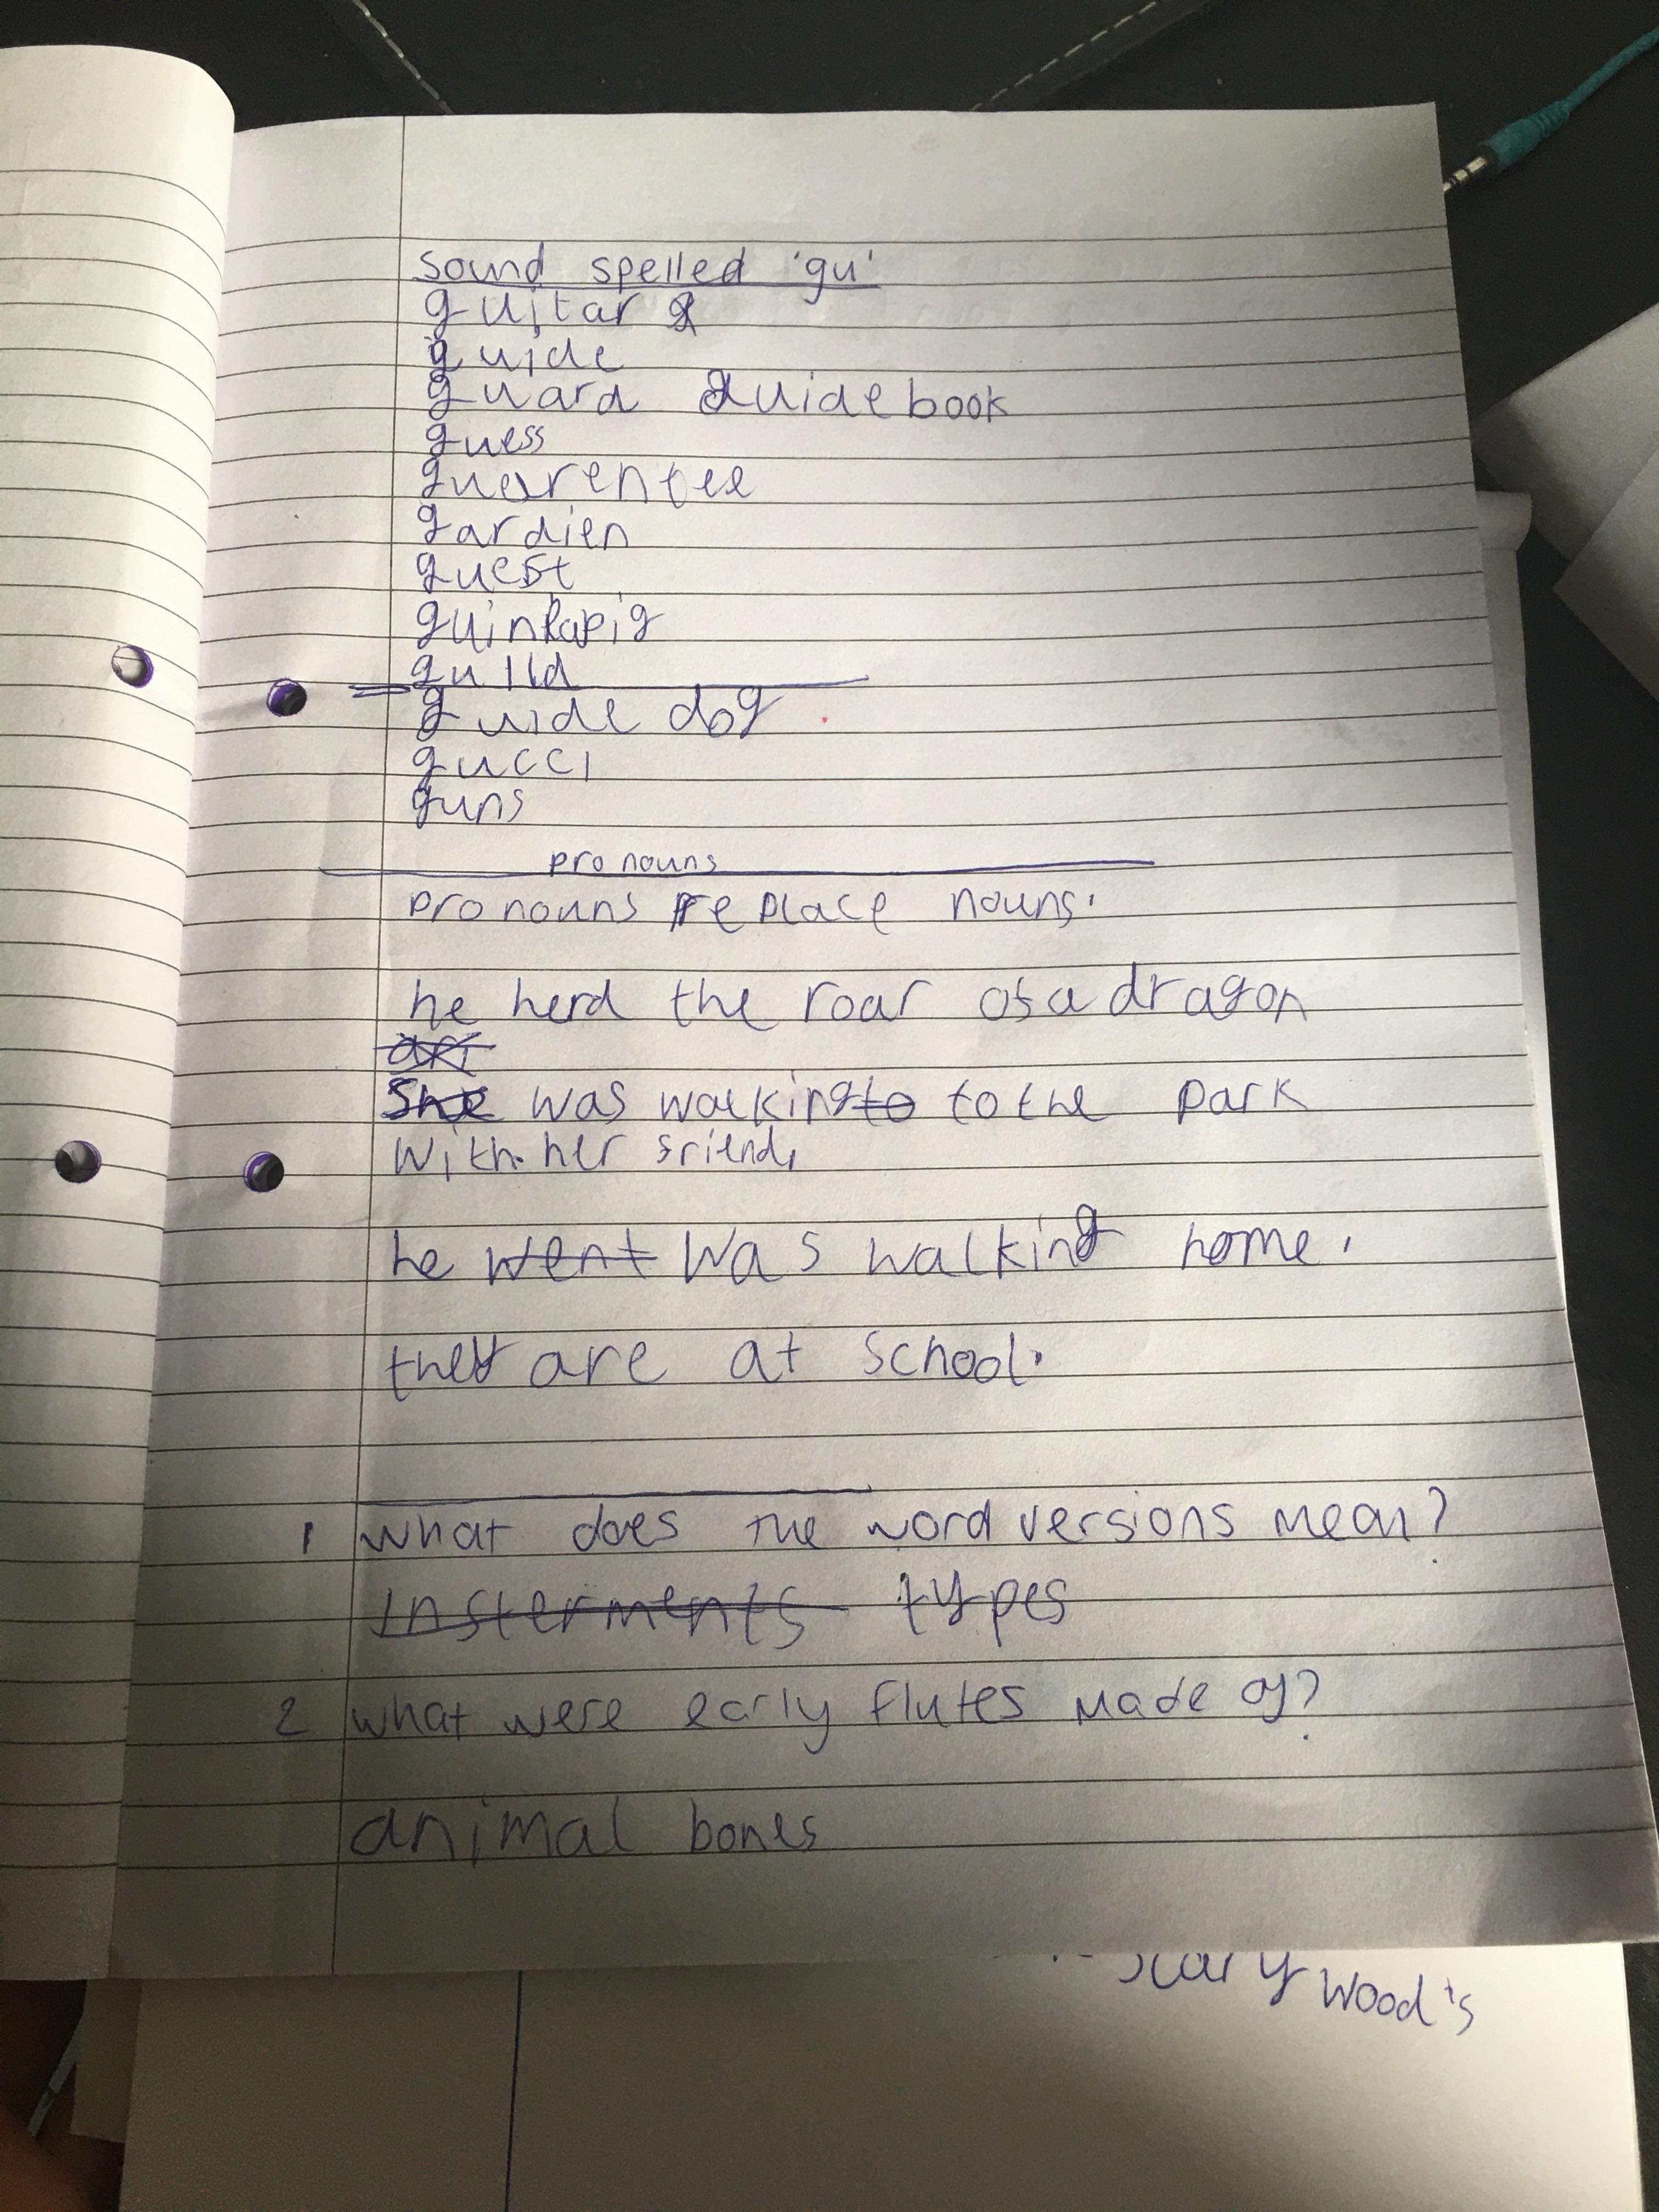 sound spelled 'gu'
guitar
guide
guard guidebook
guess
guarentee
gardien
guest
guineapig
guild
guide dog
gucci
guns
pronouns
pronouns replace nouns.
he herd the roar of a dragon
She was walking to to the park
With her friend,
he went was walking home.
they are at school.
1 what does the word versions mean?
Insterments types
2 what were early flutes made of?
animal bones
scary wood's